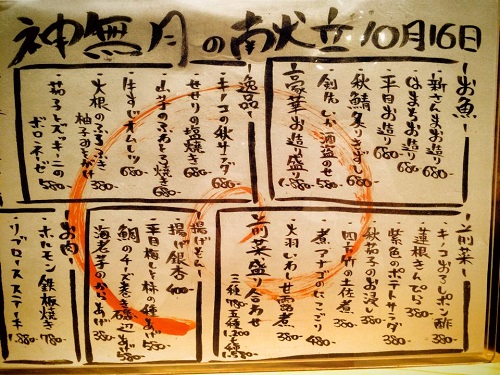 神無月の献立 10月16日
お魚
・新さんまお造り 680-
・はまちお造り 680-
・平目お造り 680-
・秋鯖炙りきずし 680-
・剣先いか酒盗のせ 580-
・豪華お造り盛り 1.880-
逸品
・キノコの秋サラダ 680-
・せせりの塩焼き 680-
・山芋のふわとろ焼き 680-
・牛すじオムレツ 680-
・大根のふろふき 柚子みそがけ 380-
・茄子とズッキーニの ボロネーゼ 580-
前菜
・キノコおろしポン酢 380-
・蓮根きんぴら 380-
・紫色のポテトサラダ 380-
・秋茄子のお浸し 380-
・四方竹の土佐煮 380-
・煮アナゴのにこごり 480-
・大羽いわし甘露煮 380-
前菜盛り合わせ
三種 980- 五種 1.200-
七種 1.580-
揚げもん
・揚げ銀杏 400-
・平目梅しそ柿の種あげ 580-
・鯛のチーズ巻き磯辺あげ 580-
・海老芋のからあげ 380-
お肉
・ホルモン鉄板焼き 780-
・リブロースステーキ 1.380-